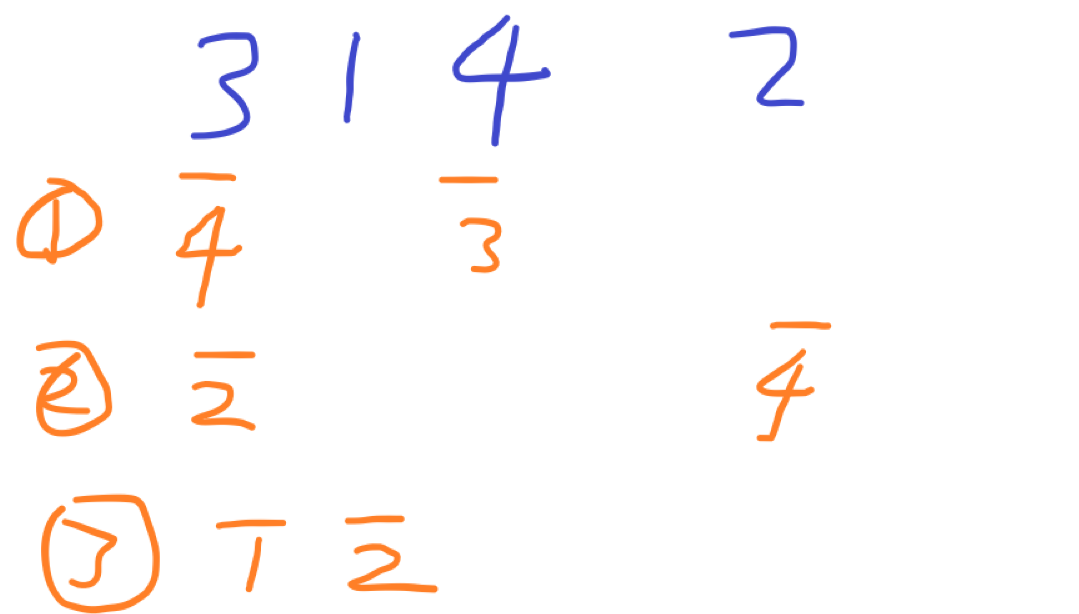 3 1 4 2
① 4 3
② 2 4
③ 1 2